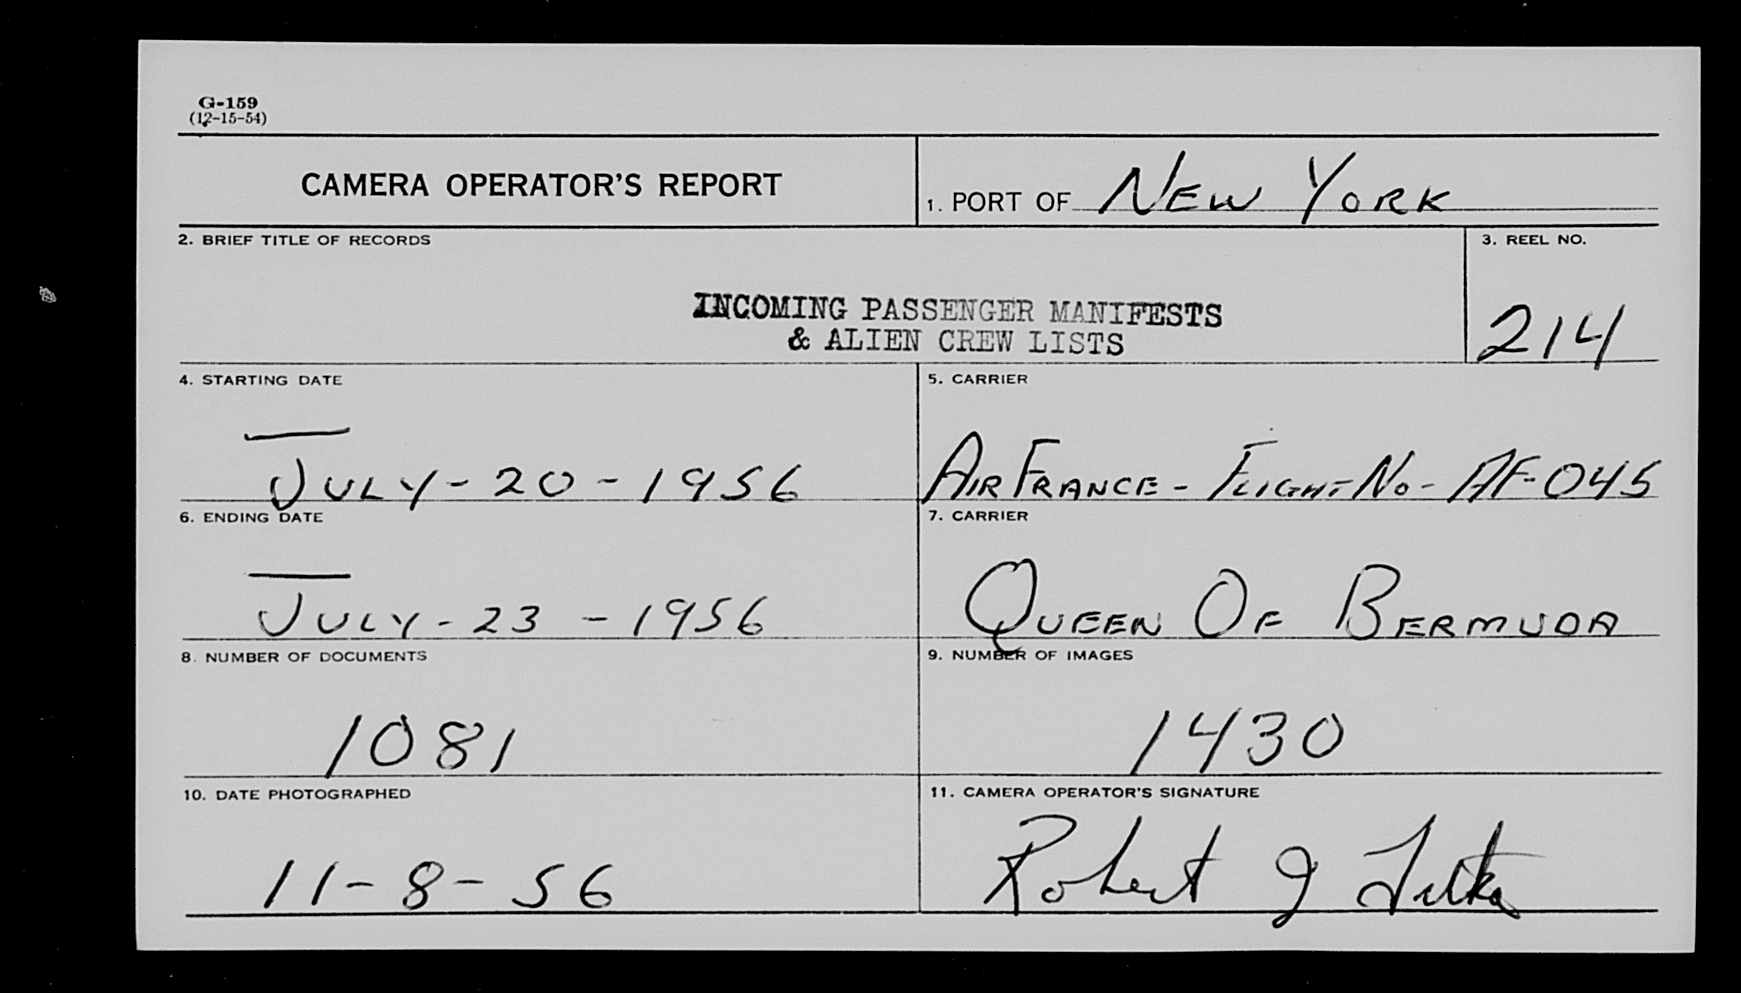 G-159
(12-15-54)
CAMERA OPERATOR'S REPORT
1. PORT OF NEW YORK
2. BRIEF TITLE OF RECORDS
INCOMING PASSENGER MANIFESTS
& ALIEN CREW LISTS
3. REEL NO.
214
4. STARTING DATE
JULY-20-1956
5. CARRIER
AIR FRANCE - FLIGHT NO - AF-045
6. ENDING DATE
JULY-23-1956
7. CARRIER
QUEEN OF BERMUDA
8. NUMBER OF DOCUMENTS
1081
9. NUMBER OF IMAGES
1430
10. DATE PHOTOGRAPHED
11-8-56
11. CAMERA OPERATOR'S SIGNATURE
Robert J